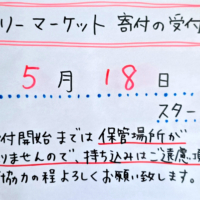 リーマーケット 寄付の受付
5月18日
スター
付開始までは保管場所が
りませんので、持ち込みはご遠慮頂
協力の程よろしくお願い致します。